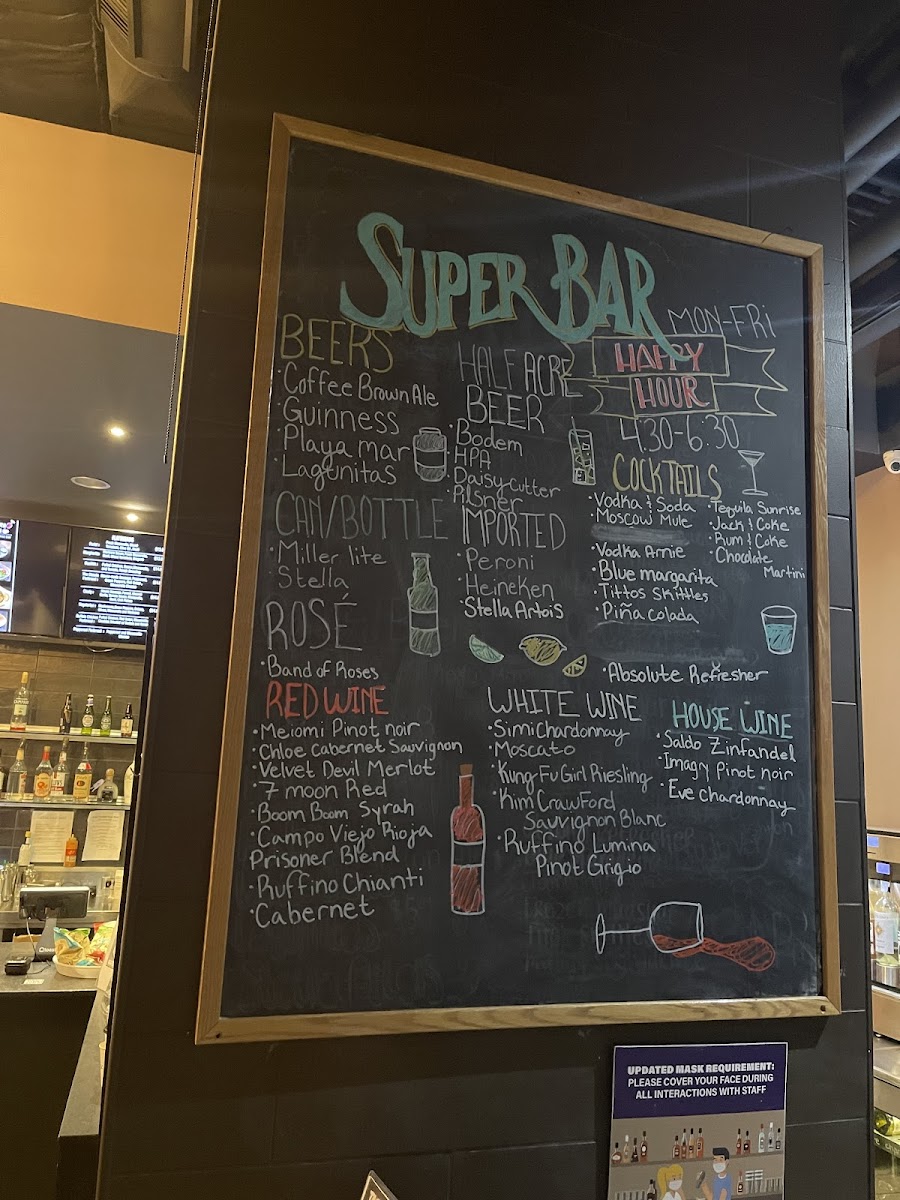 SUPER BAR
BEERS
·Coffee Brown Ale
·Guinness
·Playa mar
·Lagunitas
CAN/BOTTLE
·Miller lite
·Stella
ROSÉ
·Band of Roses
RED WINE
·Meiomi Pinot noir
·Chloe Cabernet Sauvignon
·Velvet Devil Merlot
·7 moon Red
·Boom Boom Syrah
·Campo Viejo Rioja
Prisoner Blend
·Ruffino Chianti
·Cabernet
HALF ACRE
BEER
·Bodem
·HPA
·Daisy Cutter
Pilsner
IMPORTED
·Peroni
·Heineken
·Stella Artois
WHITE WINE
·Simi Chardonnay
·Moscato
·Kung-Fu Girl Riesling
·Kim Crawford
Sauvignon Blanc
·Ruffino Lumina
Pinot Grigio
MON-FRI
HAPPY
HOUR
4:30-6:30
COCKTAILS
·Vodka & Soda
·Moscow Mule
·Vodka Arnie
·Blue margarita
·Tittos Skittles
·Piña colada
·Tequila Sunrise
·Jack & Coke
·Rum & Coke
·Chocolate
Martini
·Absolute Refresher
HOUSE WINE
·Saldo Zinfandel
·Imagry Pinot noir
·Eve chardonnay
UPDATED MASK REQUIREMENT:
PLEASE COVER YOUR FACE DURING
ALL INTERACTIONS WITH STAFF